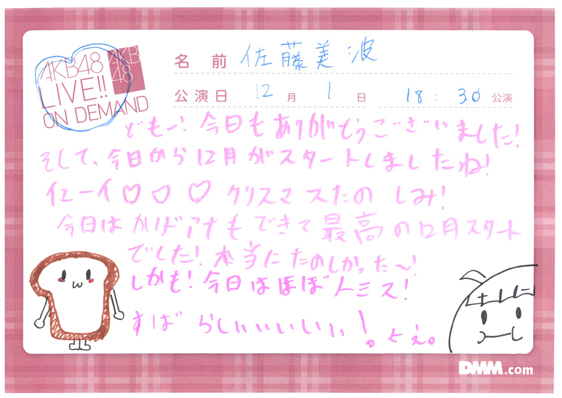 AKB48
LIVE!!
ON DEMAND
AKB
48
名前 佐藤美波
公演日 12月1日 18:30公演
どもー!今日もありがとうございました!
そして、今日から12月がスタートしましたね!
イエーイ♡♡♡クリスマスたのしみ!
今日は もできて最高の12月スタート
でした!本当にたのしかった〜!
しかも!今日はほぼ ミス!
すばらしいいいいい!
DMM.com